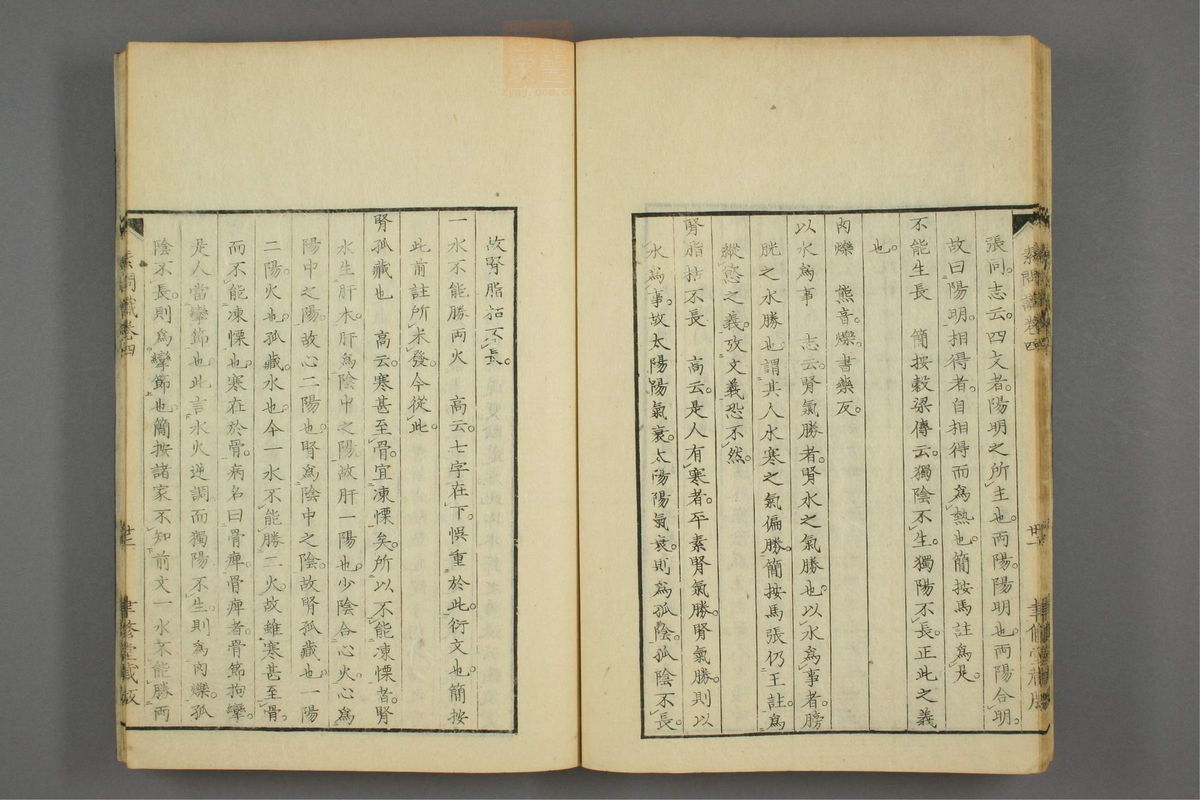 張同志云四支者陽明之所主也兩陽陽明也兩陽合明
故曰陽明相得者自相得而爲熱也簡按馬註爲是
不能生長　簡按穀梁傳云獨陰不生獨陽不長正此之義
也
肉爍　熊音爍書藥反
以水爲事　志云腎氣勝者腎水之氣勝也以水爲事者膀
胱之水勝也謂其人水寒之氣偏勝簡按馬張仍王註爲
縱慾之義攷文義恐不然
腎脂枯不長　高云是人有寒者平素腎氣勝腎氣勝則以
水爲事故太陽陽氣衰太陽陽氣衰則爲孤陰孤陰不長
故腎脂枯不長
一水不能勝兩火　高云七字在下悞重於此衍文也簡按
此前註所未發今從此
腎孤藏也　高云寒甚至骨宜凍慄矣所以不能凍慄者腎
水生肝木肝爲陰中之陽故肝一陽也少陰合心火心爲
陽中之陽故心二陽也腎爲陰中之陰故腎孤藏也一陽
二陽火也孤藏水也今一水不能勝二火故雖寒甚至骨
而不能凍慄也寒在於骨病名曰骨痺骨痺者骨節拘攣
是人當攣節也此言水火逆調而獨陽不生則爲肉爍孤
陰不長則爲攣節也簡按諸家不知前文一水不能勝兩
素問識卷四
廿二
聿修堂藏版